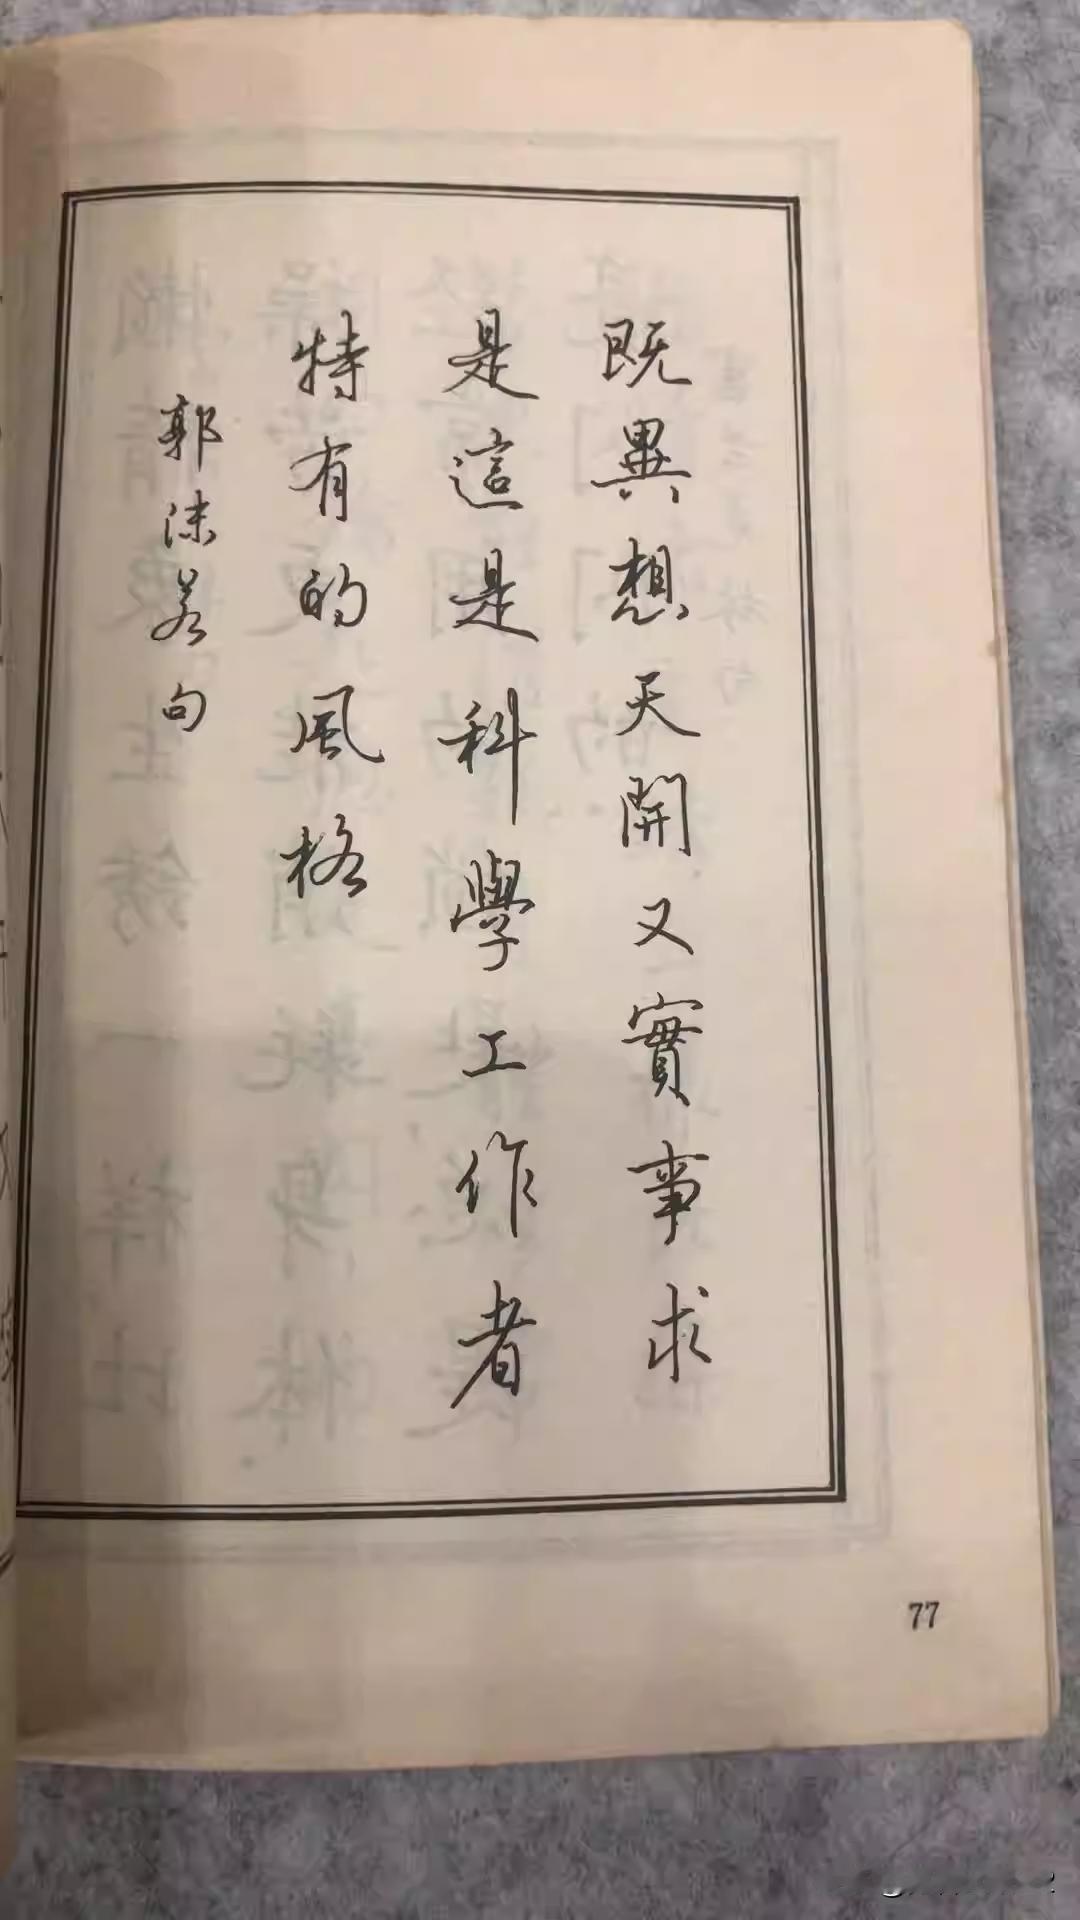 既異想天開又實事求
是這是科學工作者
特有的風格
郭沫若句
77